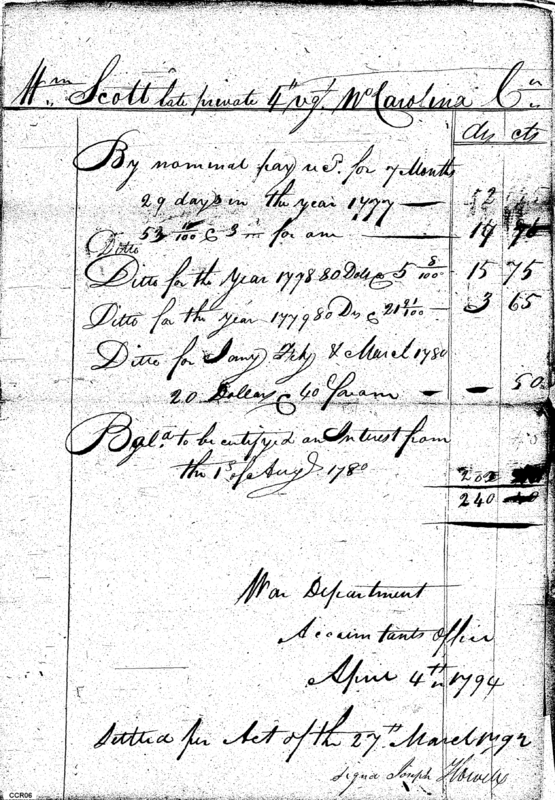 Wm Scott late private 4th regt No Carolina Cr
ds cts
By nominal pay recd. for 7 Months
29 days in the year 1777 — 52
Ditto 53 11/100 @ 3 for one — 17 76
Ditto for the Year 1778 80 Dolls @ 5 8/100 15 75
Ditto for the year 1779 80 Ds @ 21 91/100 — 3 65
Ditto for Jany Feby & March 1780
20 Dollars @ 40 for one — — 50
Bala to be certifyed on Interest from
the 1st of Augt 1780
202
240
War Department
Accountants office
April 4th 1794
Settled per Act of the 27th March 1792
Signed Joseph Howell
CCR06